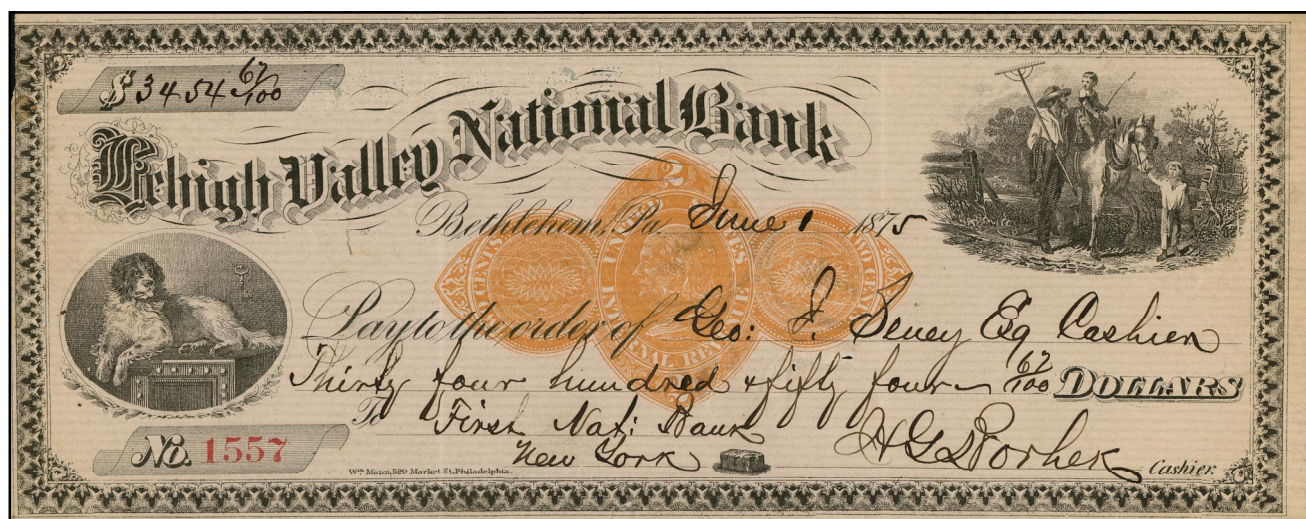 $3454 67/100
Lehigh Valley National Bank
Bethlehem, Pa. June 1 1875
Pay to the order of Geo: I. Seney Esq Cashier
Thirty four hundred & fifty four 67/100 DOLLARS
To First Nat: Bank
New York
Cashier.
No. 1557
Wm Mann, 529 Market St. Philadelphia.
2
TWO CENTS
UNITED STATES
INTERNAL REVENUE
TWO CENTS
2